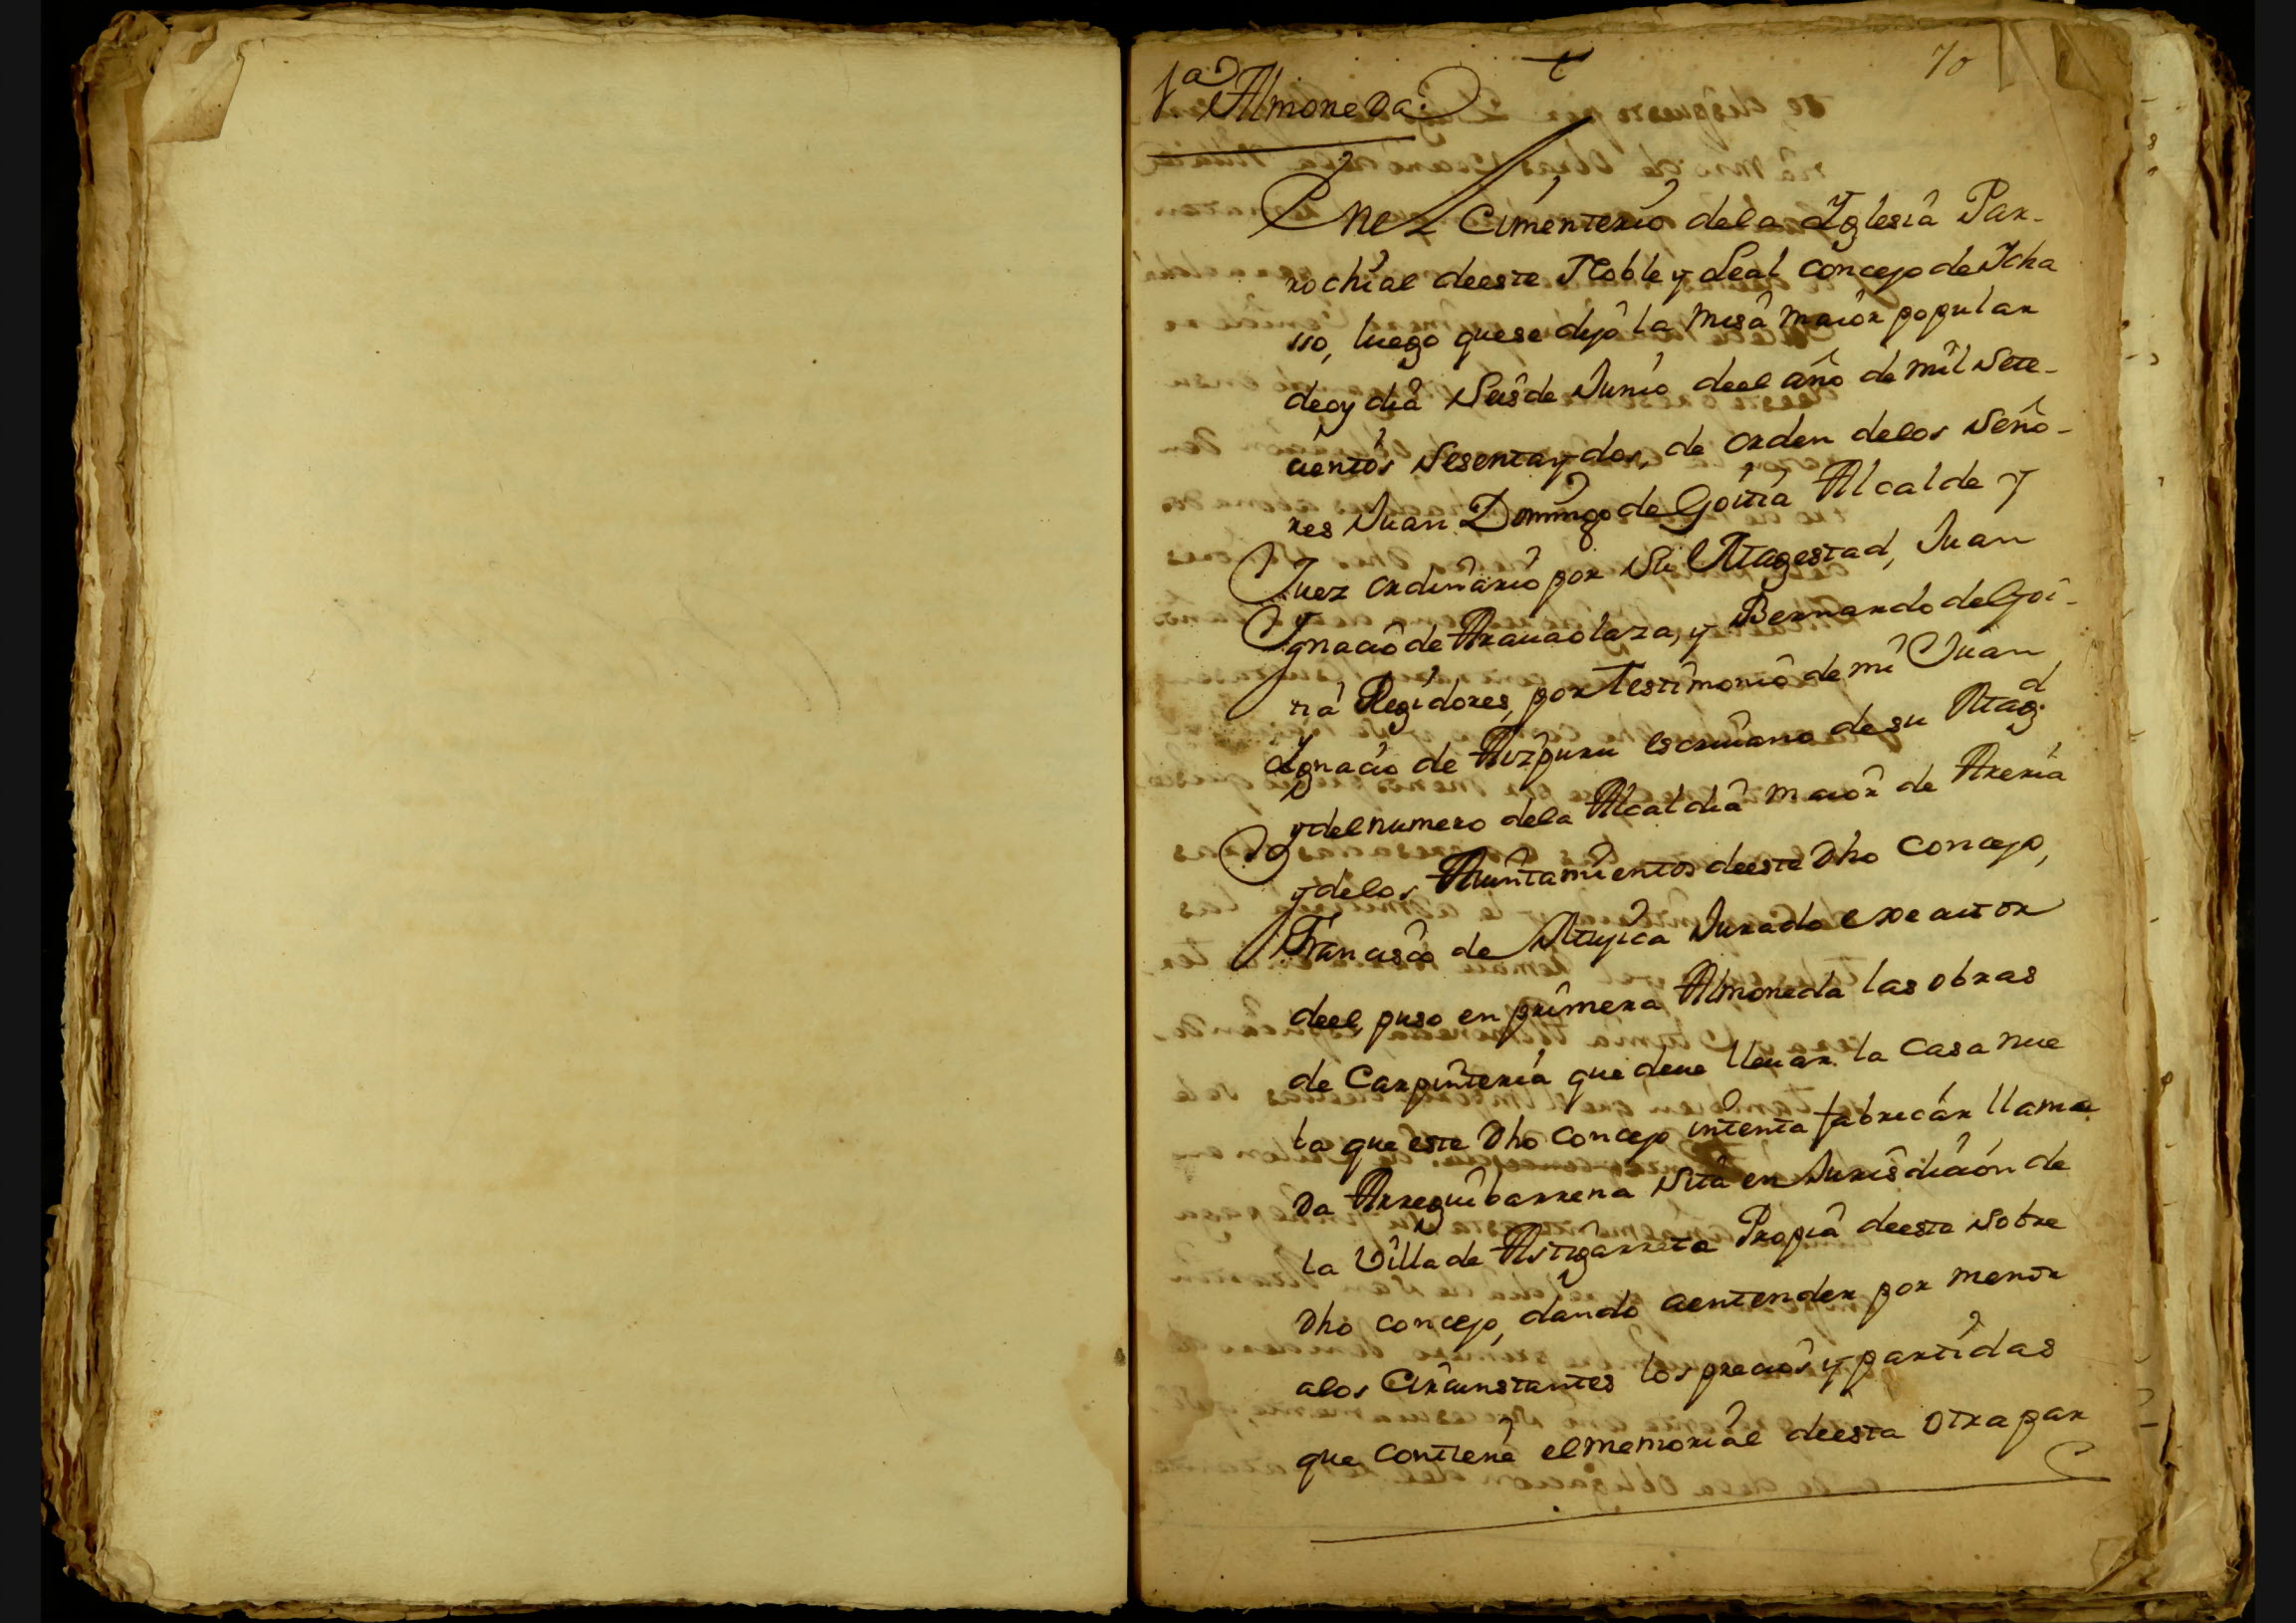 70
1.ª Almoneda
En el Cimenterio dela Yglesia Par-
rochial deeste Noble y Leal concejo de Icha
sso, luego quese dijo la misa maior popular
deoy dia Seis de Junio deel año de mil Sete-
cientos Sesentay dos, de orden delos Seño-
res Juan Domingo de Goitia Alcalde y
Juez ordinario por Su Magestad, Juan
Ygnacio de Arauaolaza, y Bernardo de Goi-
tia Regidores, por Testimonio de mi Juan
Ygnacio de Aizpuru escriuano de su Mag.d
y del numero dela Alcaldia maior de Areria
y delos Aiuntamientos deeste Dho Concejo,
Francisco de Mujica Jurado executor
deel, puso en primera Almoneda las obras
de Carpinteria que deue lleuar la Casa nue
ba que este Dho concejo intenta fabricar llama
Da Arreguibarrena Sita en Jurisdicion de
la Villa de Astigarreta Propia deeste Sobre
Dho concejo, dando aentender por menor
alos Circunstantes los precios y partidas
que contiene el memorial deesta otra par